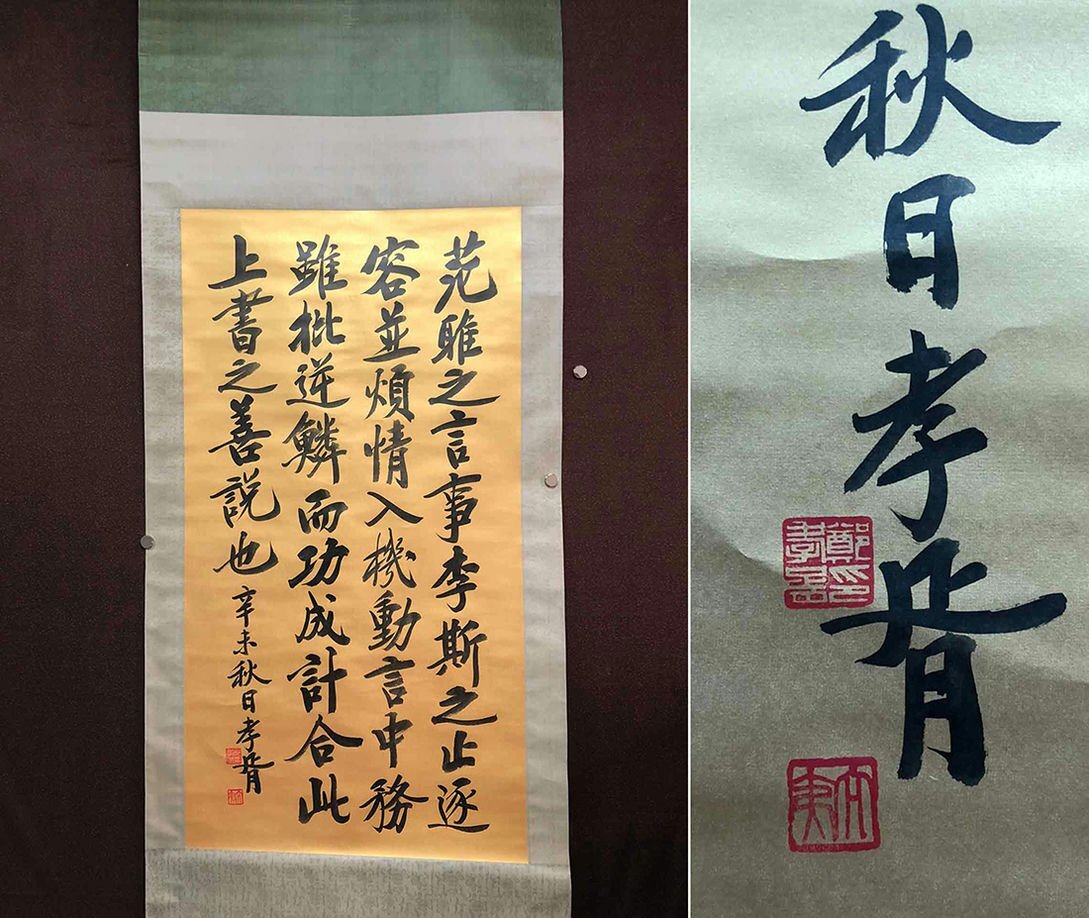 范雎之言事李斯之止逐
客並煩情入機動言中務
雖批逆鱗而功成計合此
上書之善說也
辛未秋日孝胥
秋日孝胥
鄭印孝胥
太夷